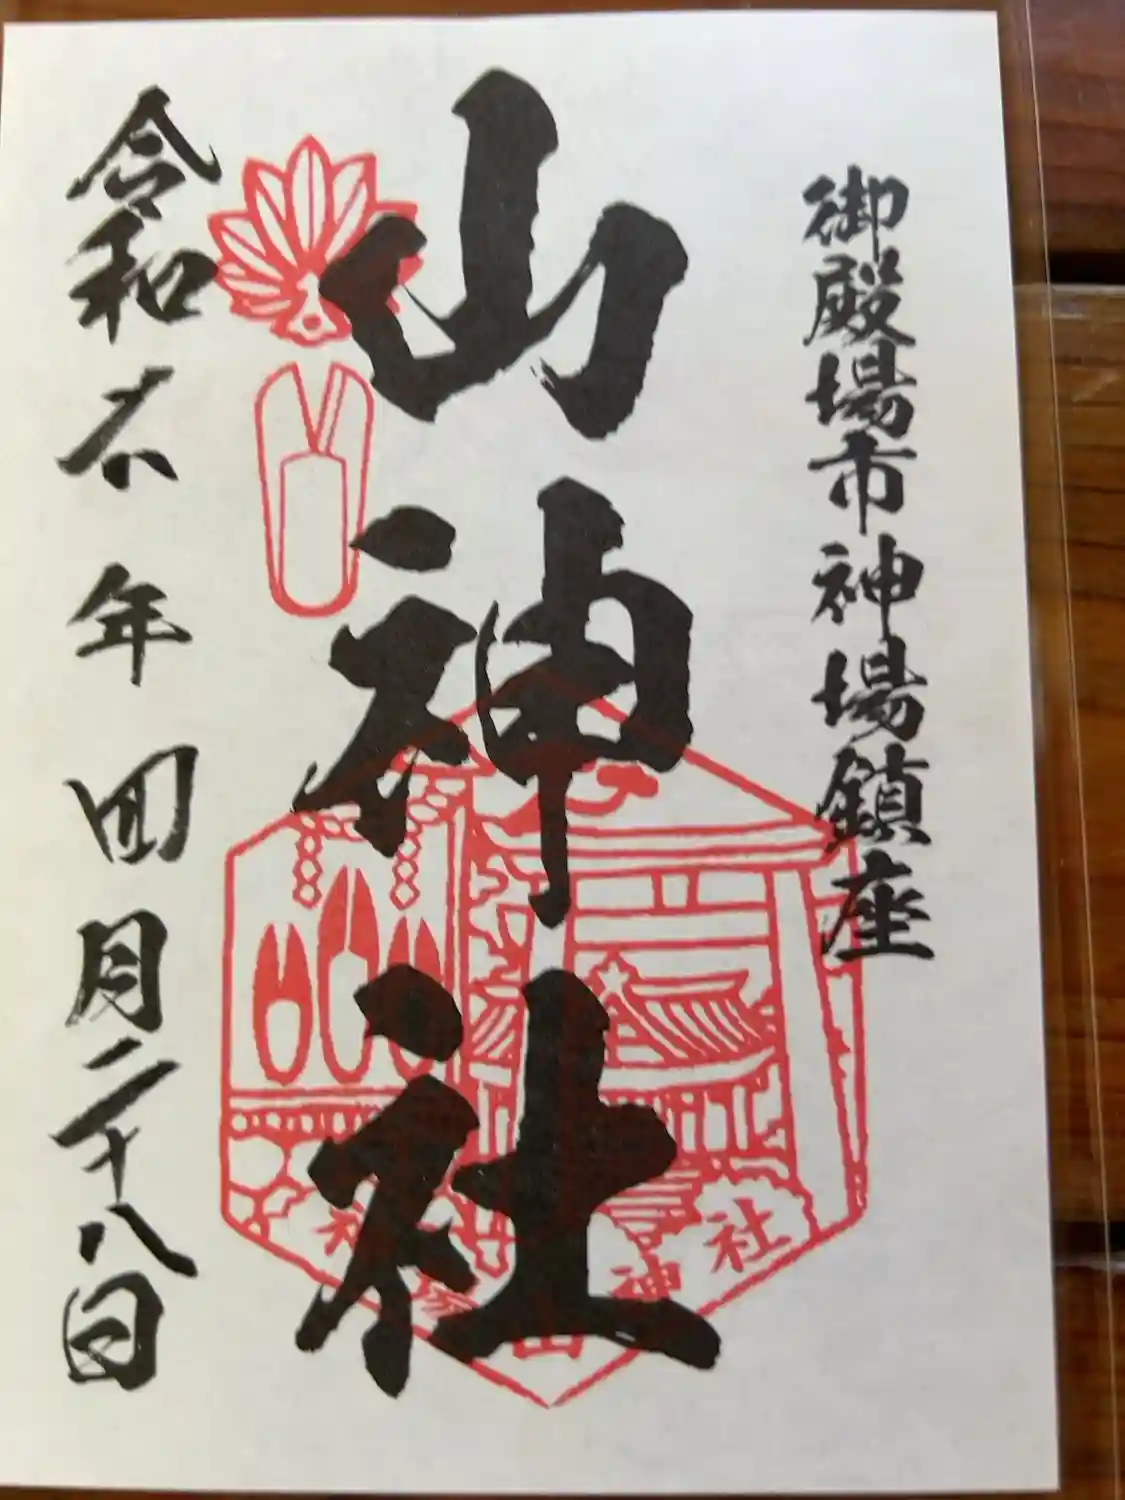 御殿場市神場鎮座
山神社
令和六年四月二十八日
神場山神社